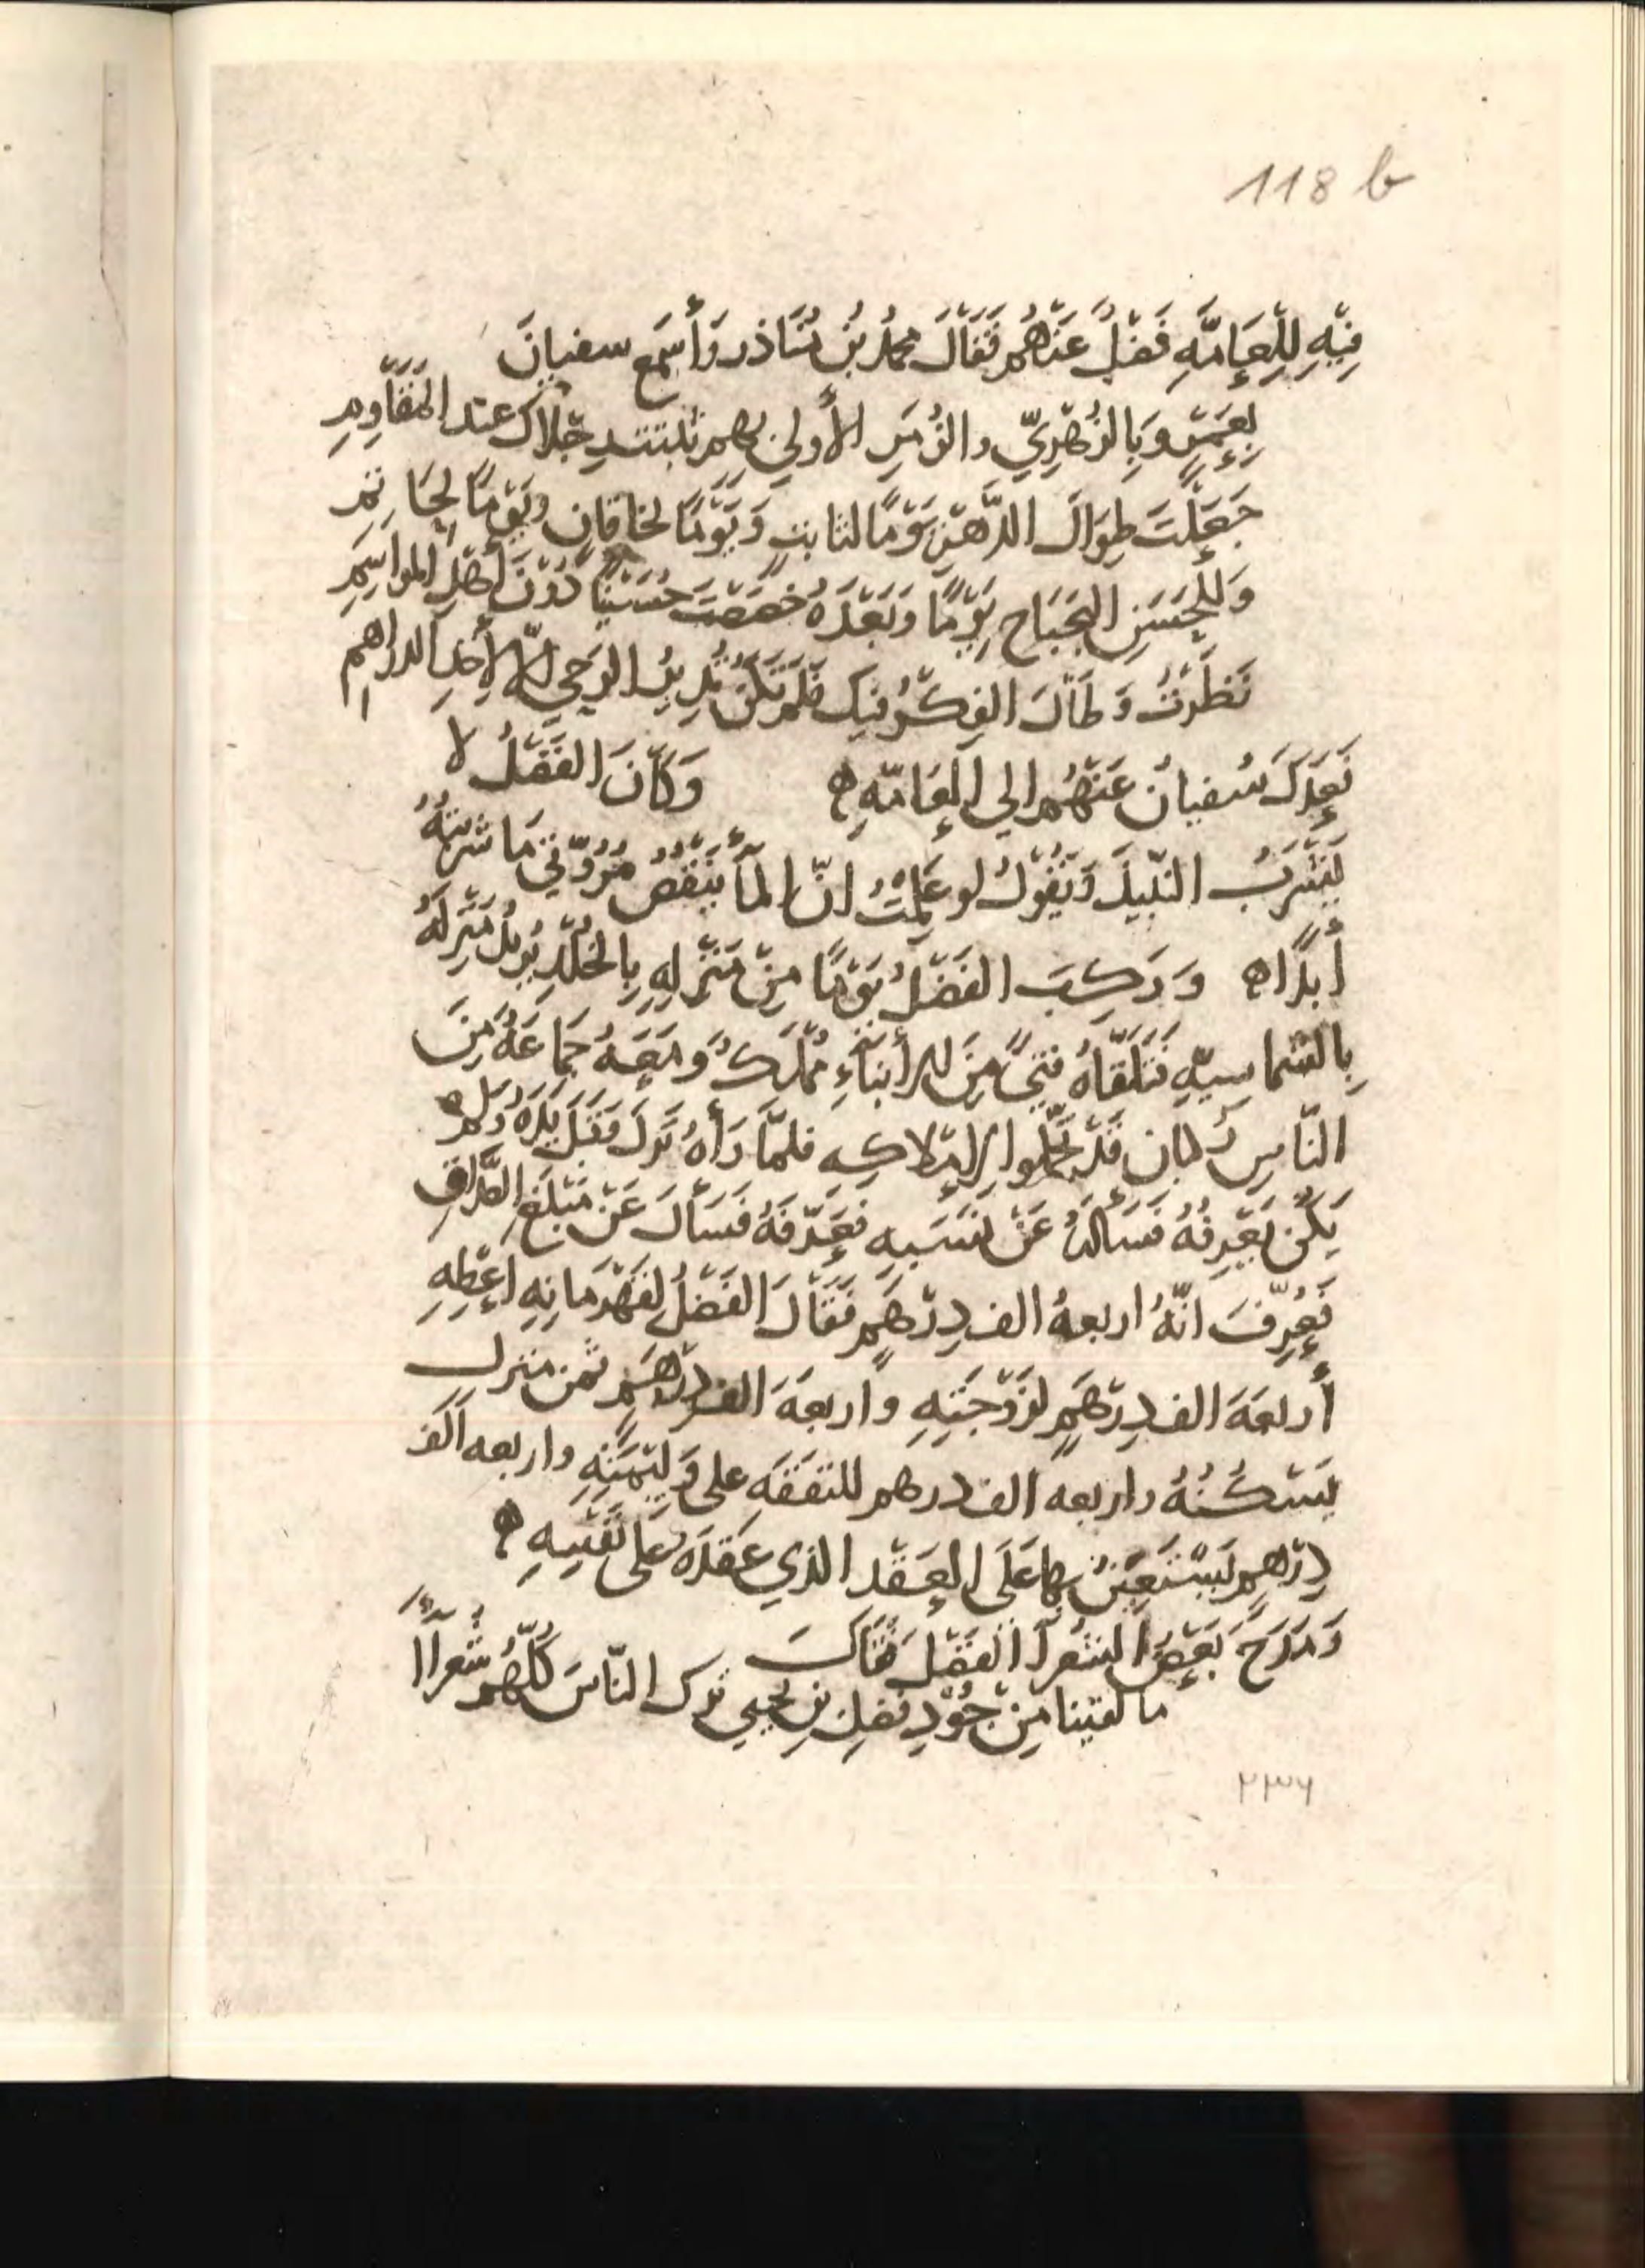 118 b
فِيْهِ لِلْعَامَّةِ فَضْلٌ عَنْهُم فَقَالَ محمدُ بْنُ مُنَاذر وَأَسْمَع سفيانَ
بِعَمْرٍو وَبِالزُهْرِيّ والزُمَرِ الأُولى بهم ثبتت رجلاك عند المَقَاوِمِ
جَعَلْتَ طِوَالَ الدَّهْرِ يَوْمًا لثابتٍ وَيَوْمًا لخاقان ويَوْمًا لحَاتم
وَلِلْحَسَنِ البَحْبَاح يَوْمًا وَبَعْدَهُ خصَصْتَ حُسَيْنًا دُوْنَ أَهْلِ المواسِمِ
نَظَرْتُ وَطَالَ الفِكْرُ فيك فَلَمْ تَكُنْ تُدِيْرُ الرَحي إلّا لِأَخذِ الدراهِمِ
فَعَدَلَ سُفيانُ عَنْهُم الي العَامّةِ ه وَكَانَ الفَضْلُ لا
يَشْرَبُ النّبِيذَ وَيَقُولُ لو عَلِمْتُ انّ المآ يَنْقُصُ مُرُوّتي مَا شَرِبْتُهُ
أَبَدًا ه وَرَكِبَ الفَضْلُ يَوْمًا مِنْ مَنْزِلِهِ بِالخُلْدِ يُرِيْدُ مَنْزِلَهُ
بِالشماسِيّةِ فَتَلَقّاهُ فتيً مِنَ الأبنَآءِ مُمْلَكٌ وَمَعَهُ جَمَاعَةٌ مِنَ
النّاسِ رُكبان قَدْ تحمّلوا لإمْلاكِهِ فلمّا رَأَهُ نَزَلَ وَقَبّلَ يَدَهُ وَلم
يَكُنْ يَعْرِفُهُ فَسَأَلَهُ عَنْ نَسَبِهِ فَعَرّفَهُ فَسَأَلَ عَنْ مَبْلَغِ الصّداقِ
فَعُرِّفَ انّهُ اربعةُ الف دِرْهَمٍ فَقَالَ الفَضْلُ لقَهْرَمانِهِ اعْطِهِ
أَربعَةَ الف دِرْهَمٍ لزَوْجَتِهِ واربعَةَ الف دِرْهَمٍ ثمن منزلٍ
يَسْكُنُهُ واربعه الف درهم للنَفَقَهِ على وَلِيْمَتِهِ واربعه آلف
دِرْهم يَسْتَعِيْنُ بها عَلَى العَقْد الذي عَقَدَهُ عَلى نَفْسِهِ ه
وَمَدَحَ بَعْضُ الشُعَرآ الفَضْلَ فَقَالَ
ما لقينا مِنْ جُوْدِ فضلِ بنِ يحيي ترك النّاسَ كُلّهُم شُعرآءَا
٢٣٦